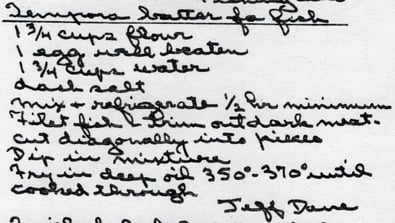 Tempora batter for fish
1 3/4 cups flour
1 egg well beaten
1 3/4 cups water
dash salt
mix + refrigerate 1/2 hr minimum
Filet fish & trim out dark meat.
cut diagonally into pieces
Dip in mixture
Fry in deep oil 350°-370° until
cooked through
Jeff Dane